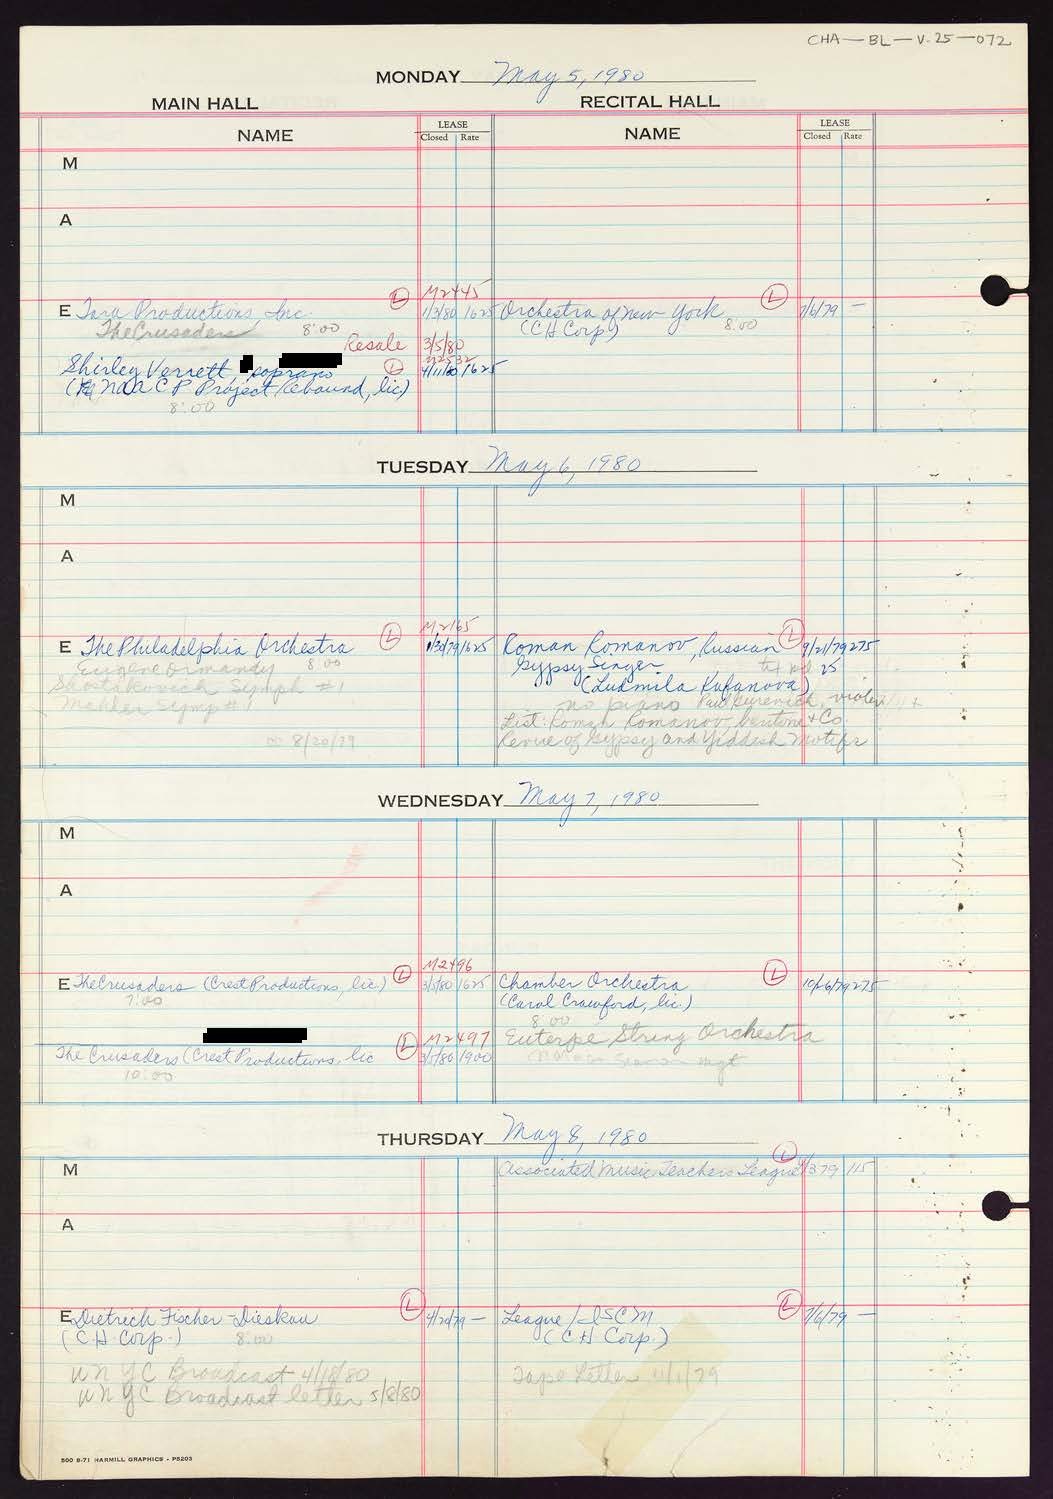 CHA—BL—V.25—072
MONDAY May 5, 1980
MAIN HALL RECITAL HALL
NAME LEASE Closed Rate NAME LEASE Closed Rate
M
A
M2445
E Tara Productions Inc. L 1/3/80 1625 Orchestra of New York L 7/6/79 —
The Crusaders 8:00 (CH Corp) 8:00
Resale 3/5/80
M2532
Shirley Verrett, soprano L 4/11/80 1625
(NAACP Project Rebound, lic)
8:00
TUESDAY May 6, 1980
M
A
M2165
E The Philadelphia Orchestra L 1/30/79 1625 Roman Romanov, Russian L 9/21/79 275
Eugene Ormandy 8:00 Gypsy Singer 25
Shostakovich Symph #1 (Ludmila Kafanova)
Mahler Symp #1 no piano Paul Gurevich, violin
List: Roman Romanov, & Co.
8/20/79 Revue of Gypsy and Yiddish Motifs
WEDNESDAY May 7, 1980
M
A
M2496
E The Crusaders (Crest Productions, lic) L 3/5/80 1625 Chamber Orchestra L 275
7:00 (Carol Crawford, lic.)
8:00
L M2497 Euterpe String Orchestra
The Crusaders (Crest Productions, lic 3/5/80 1900 mgt
10:00
THURSDAY May 8, 1980
M Associated Music Teachers League L 115
A
E Dietrich Fischer-Dieskau L — League/ISCM L 7/6/79 —
(CH Corp.) 8:00 (CH Corp.)
WNYC Broadcast 4/18/80 Tape Letter 11/1/79
WNYC Broadcast letter 5/8/80
500 8-71 HARMILL GRAPHICS - P5203